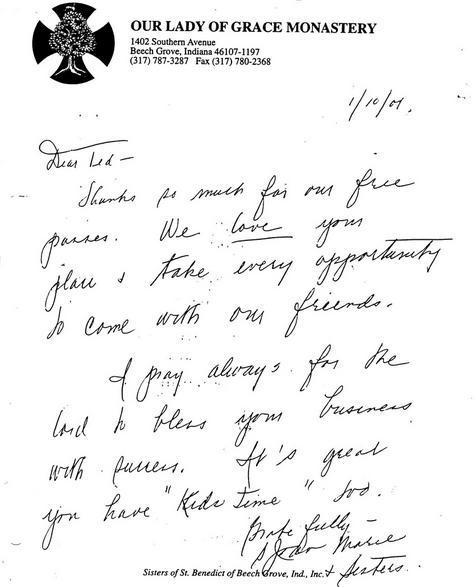 OUR LADY OF GRACE MONASTERY
1402 Southern Avenue
Beech Grove, Indiana 46107-1197
(317) 787-3287 Fax (317) 780-2368
1/10/01.
Dear Ted –
Thanks so much for our free
passes. We love your
place & take every opportunity
to come with our friends.
I pray always for the
Lord to bless your business
with success. It's great
you have "Kids Time" too.
Gratefully –
S. Joan Marie
& Sisters.
Sisters of St. Benedict of Beech Grove, Ind., Inc.